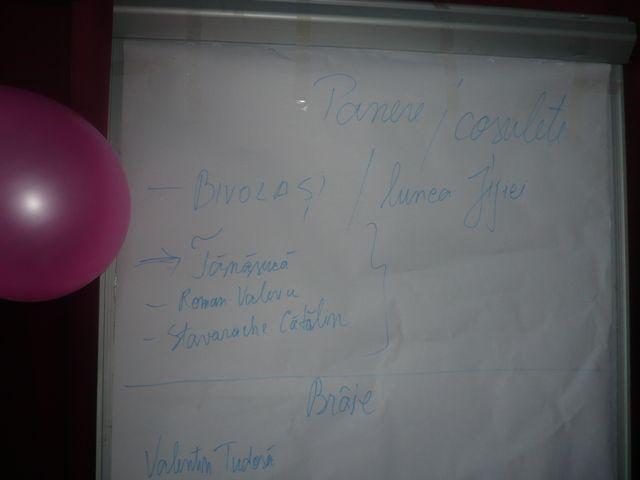 Panere / cosulete
— BIVOLAȘI / lunca Jijiei
→ Tămășucă
— Roman Valeriu
— Stavarache Cătălin
Brâie
Valentin Tudosă